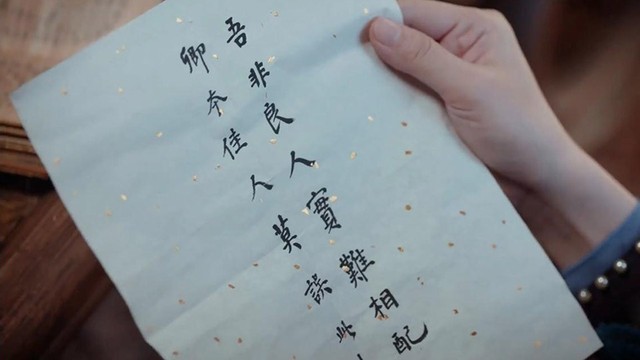 吾非良人實難相配
卿本佳人莫誤此